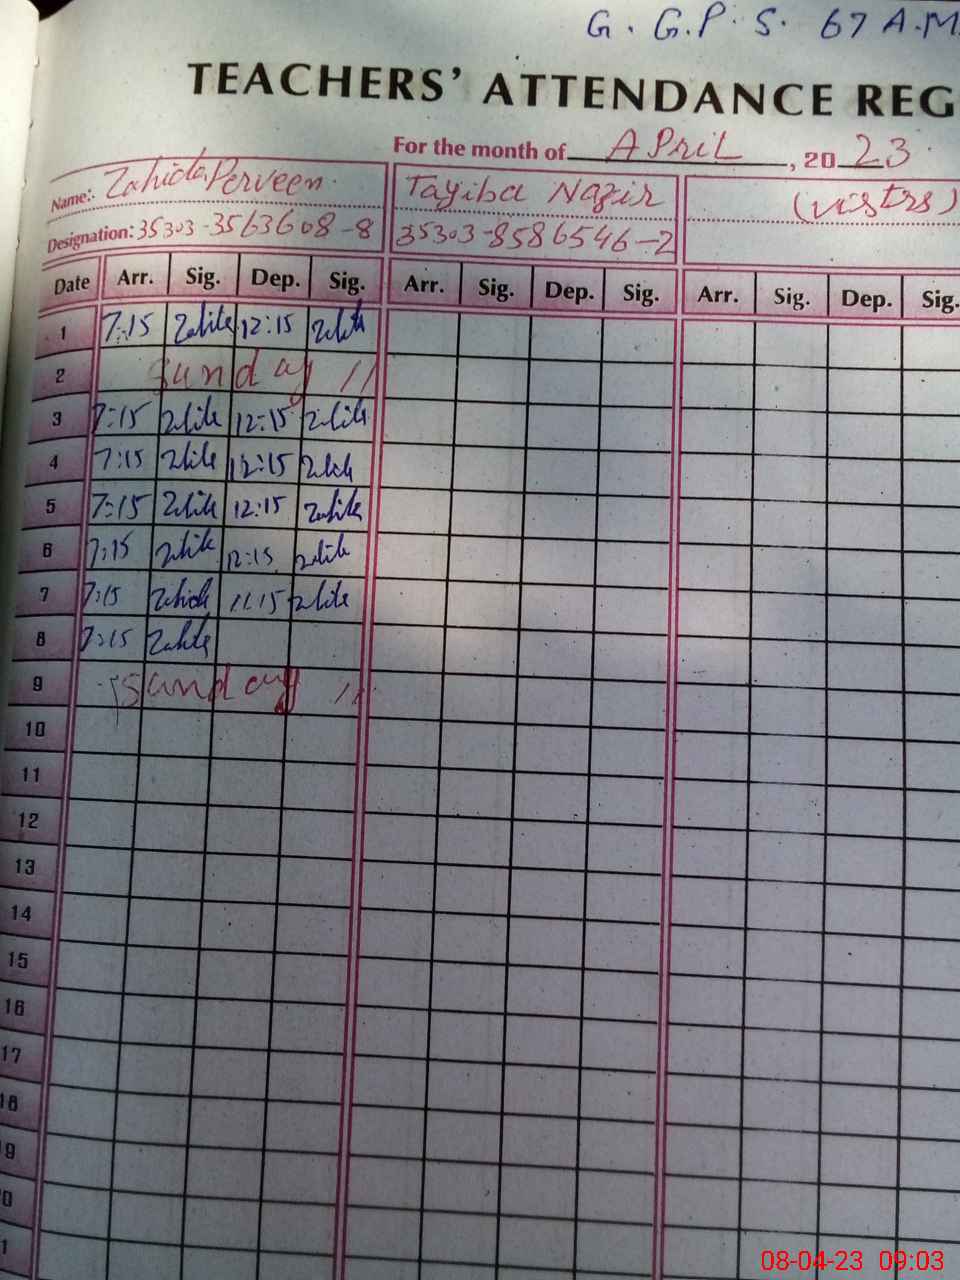 G. G.P.S. 67 A.M.
TEACHERS' ATTENDANCE REG
For the month of APRIL, 2023
Name: Zahida Perveen Tayiba Nazir (vistrs)
Designation: 35303-3563608-8 35303-8586546-2
Date Arr. Sig. Dep. Sig. Arr. Sig. Dep. Sig. Arr. Sig. Dep. Sig.
1 7:15 12:15
2 Sunday //
3 7:15 12:15
4 7:15 12:15
5 7:15 12:15
6 7:15 12:15
7 7:15 11:15
8 7:15
9 Sunday //
10
11
12
13
14
15
16
17
18
9
0
1
08-04-23 09:03